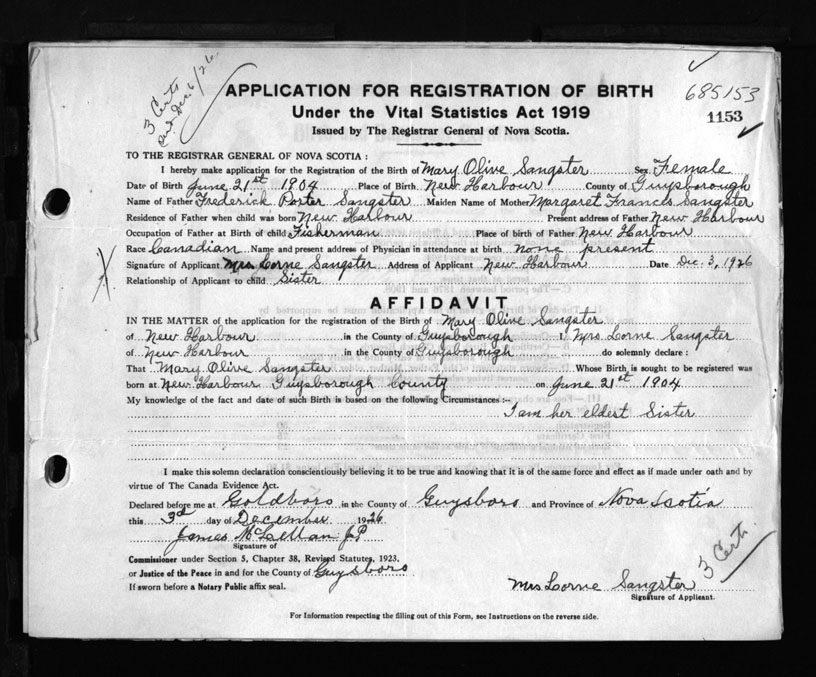 3 Certs
Dec. 6/26.
APPLICATION FOR REGISTRATION OF BIRTH
Under the Vital Statistics Act 1919
Issued by The Registrar General of Nova Scotia.
685153
1153
TO THE REGISTRAR GENERAL OF NOVA SCOTIA :
I hereby make application for the Registration of the Birth of Mary Olive Sangster Sex Female
Date of Birth June 21st 1904 Place of Birth New Harbour County of Guysborough
Name of Father Frederick Porter Sangster Maiden Name of Mother Margaret Francis Sangster
Residence of Father when child was born New Harbour Present address of Father New Harbour
Occupation of Father at Birth of child Fisherman Place of birth of Father New Harbour
Race Canadian Name and present address of Physician in attendance at birth none present
Signature of Applicant Mrs Lorne Sangster Address of Applicant New Harbour Date Dec. 3, 1926
Relationship of Applicant to child Sister
AFFIDAVIT
IN THE MATTER of the application for the registration of the Birth of Mary Olive Sangster
of New Harbour in the County of Guysborough I Mrs Lorne Sangster
of New Harbour in the County of Guysborough do solemnly declare :
That Mary Olive Sangster Whose Birth is sought to be registered was
born at New Harbour Guysborough County on June 21st 1904
My knowledge of the fact and date of such Birth is based on the following Circumstances :-
I am her eldest Sister
I make this solemn declaration conscientiously believing it to be true and knowing that it is of the same force and effect as if made under oath and by
virtue of The Canada Evidence Act.
Declared before me at Goldboro in the County of Guysboro and Province of Nova Scotia
this 3d day of December 1926
James McLellan J.P.
Signature of
Commissioner under Section 5, Chapter 38, Revised Statutes, 1923,
or Justice of the Peace in and for the County of Guysboro
If sworn before a Notary Public affix seal.
3 Certs.
Mrs Lorne Sangster
Signature of Applicant.
For Information respecting the filling out of this Form, see Instructions on the reverse side.